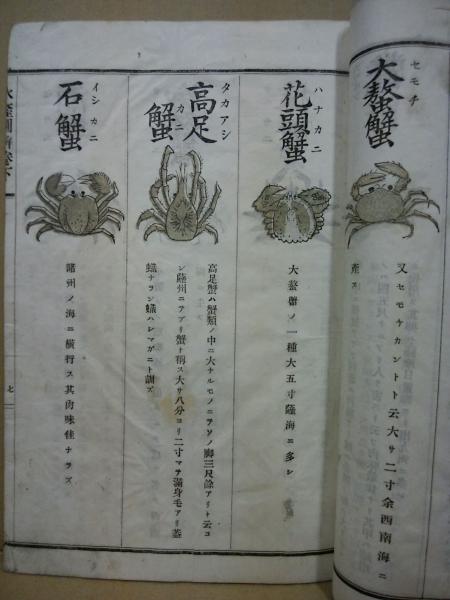 セモチ
大螯蟹
又セモチカントト云大サ二寸余西南海ニ
産ス
ハナカニ
花頭蟹
大螯蟹ノ一種大五寸薩海ニ多シ
タカアシ
高足
カニ
蟹
高足蟹ハ蟹類ノ中ニ大ナルモノニテソノ脚三尺餘アリト云コ
ン陸州ニテアブリ蟹ト稱ス大サ八分ヨリ二寸マテ滿身毛アリ蓋
蟙ナラン蟙ハレマガニト訓ズ
イシカニ
石蟹
諸州ノ海ニ横行ス其肉味佳ナラズ
七